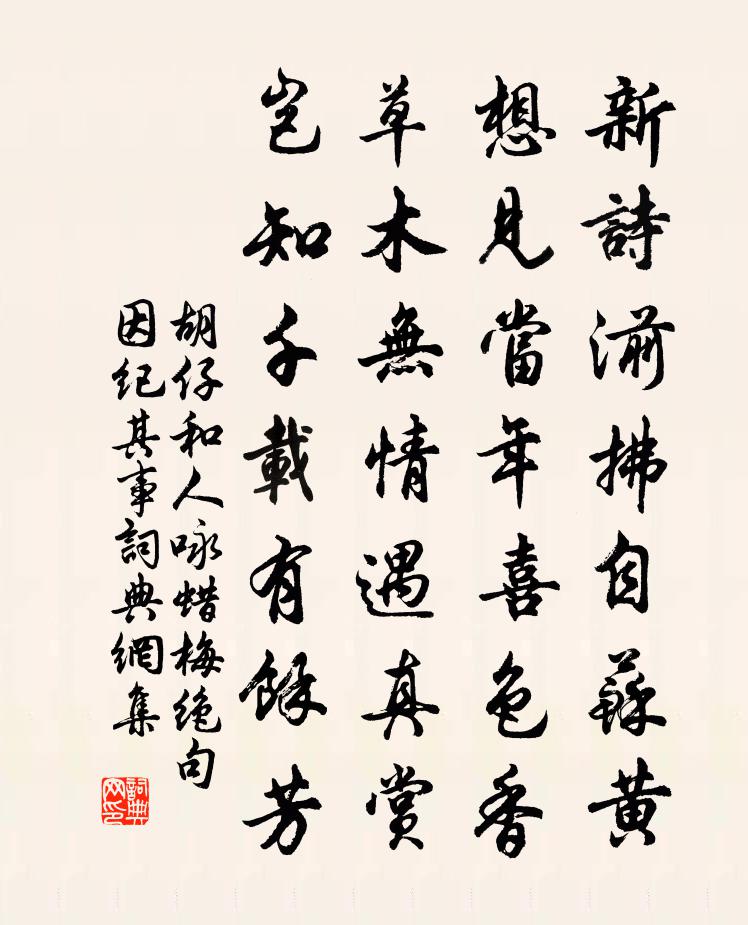 新詩湔拂自蘇黃
想見當年喜色香
草木無情遇真賞
豈知千載有餘芳
胡仔和人咏蜡梅絶句
因紀其事詞典網集
詞典
网印